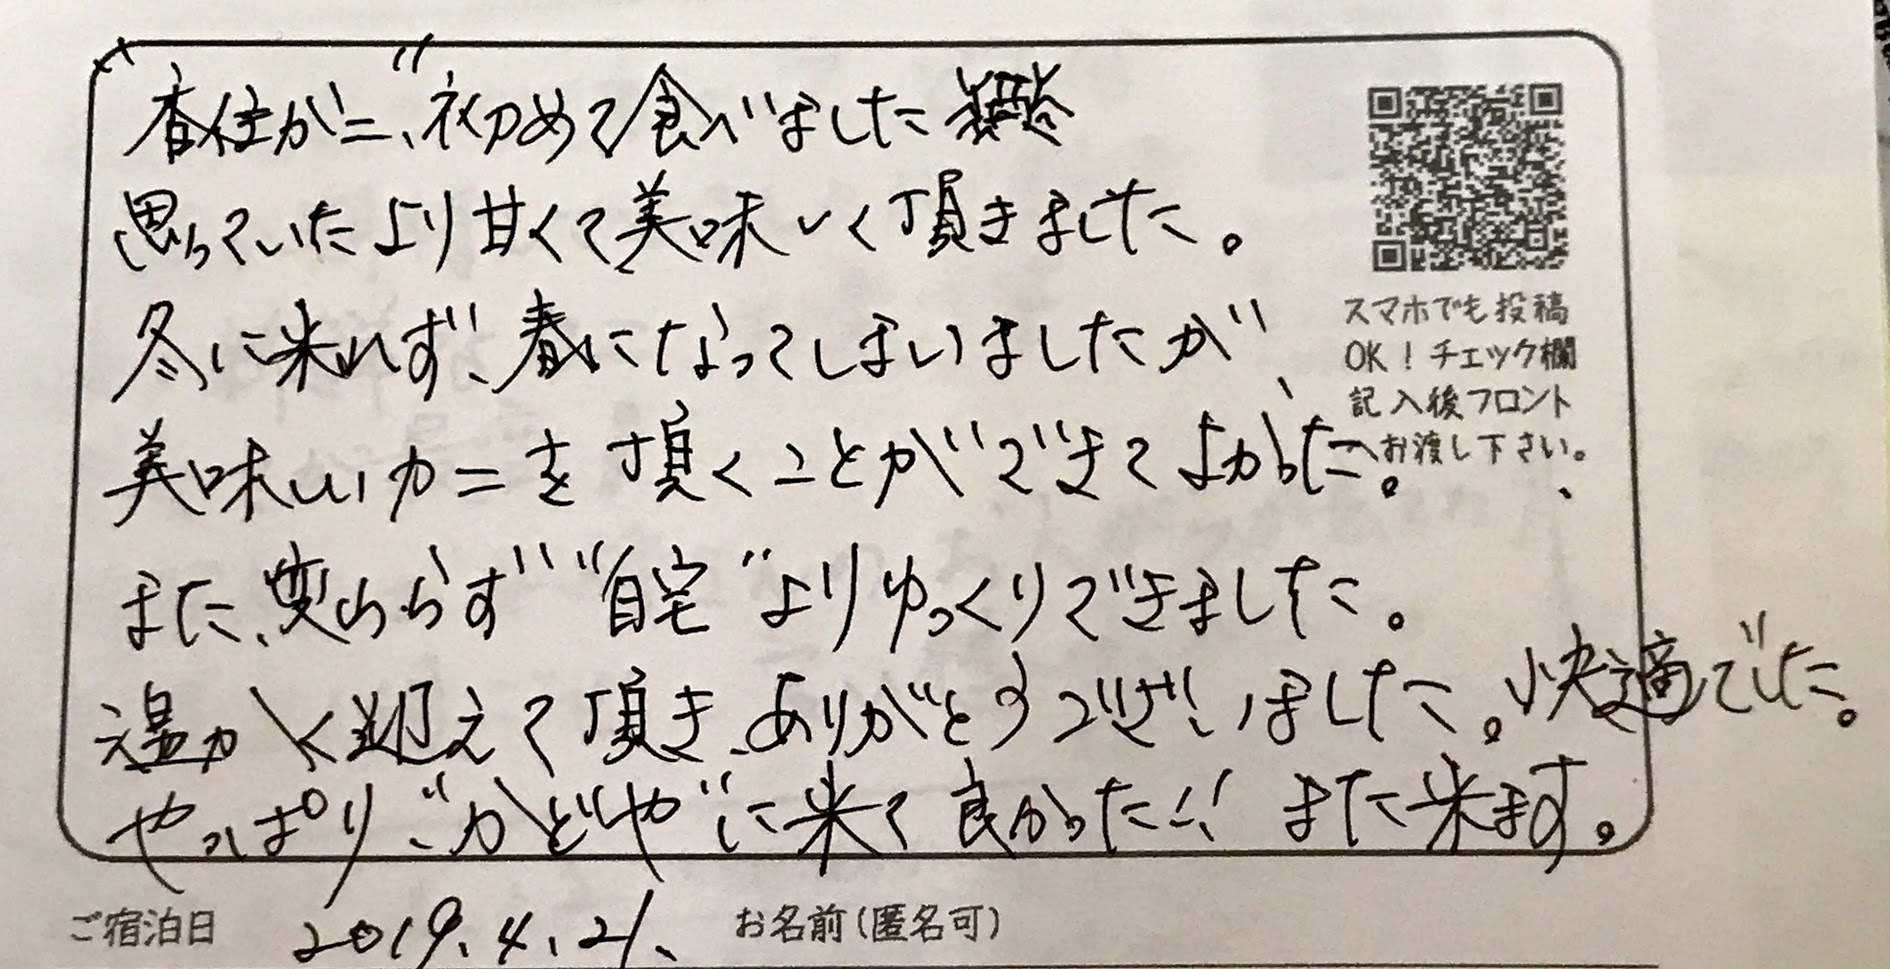 "香住がニ"、初めて食べました
思っていたより甘くて美味しく頂きました。
冬に来れず、春になってしまいましたが、
美味しいカニを頂くことができてよかった。
また、変わらず"自宅"よりゆっくりできました。
温かく迎えて頂き、ありがとうございました。快適でした。
やっぱり"かどや"に来て良かった!! また来ます。
スマホでも投稿
OK！チェック欄
記入後フロント
へお渡し下さい。
ご宿泊日 2019.4.21. お名前(匿名可)